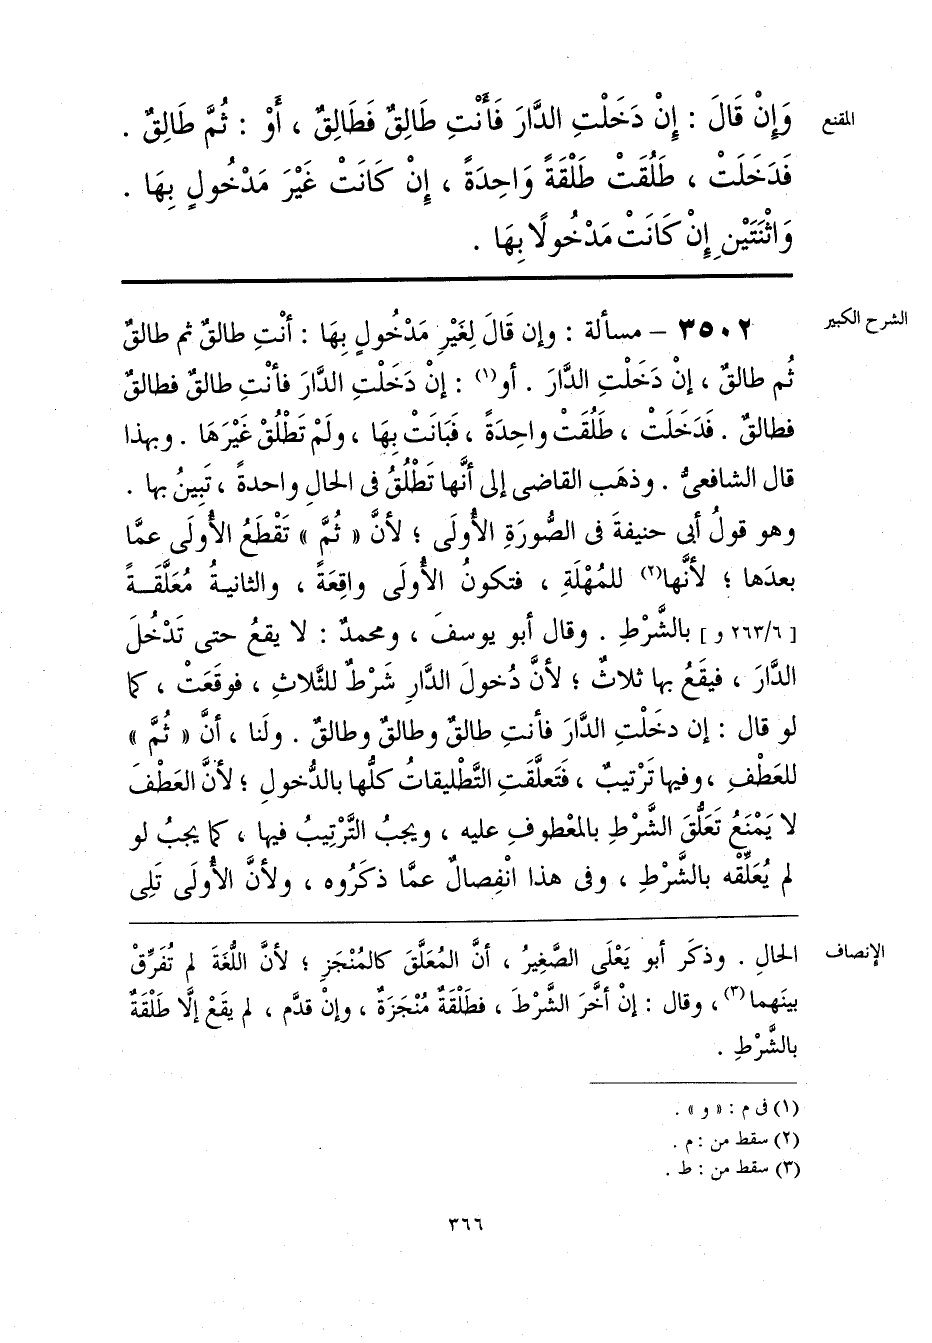 المقنع
وَإِنْ قَالَ : إِنْ دَخَلْتِ الدَّارَ فَأَنْتِ طَالِقٌ فَطَالِقٌ ، أَوْ : ثُمَّ طَالِقٌ .
فَدَخَلَتْ ، طَلُقَتْ طَلْقَةً وَاحِدَةً ، إِنْ كَانَتْ غَيْرَ مَدْخُولٍ بِهَا .
وَاثْنَتَيْنِ إِنْ كَانَتْ مَدْخُولًا بِهَا .
الشرح الكبير
٣٥٠٢ – مسألة : وإن قَالَ لِغَيْرِ مَدْخُولٍ بِهَا : أنْتِ طالقٌ ثم طالقٌ
ثُم طالقٌ ، إنْ دَخَلْتِ الدَّارَ . أو(١) : إنْ دَخَلْتِ الدَّارَ فأنْتِ طالقٌ فطالقٌ
فطالقٌ . فَدَخَلَتْ ، طَلُقَتْ واحِدَةً ، فَبَانَتْ بِهَا ، ولَمْ تَطْلُقْ غَيْرَهَا . وبهذا
قال الشافعىُّ . وذهَب القاضى إلى أنَّها تَطْلُقُ فى الحالِ واحدةً ، تَبِينُ بها .
وهو قولُ أبى حنيفةَ فى الصُّورَةِ الأُولَى ؛ لأنَّ « ثُمَّ » تَقْطَعُ الأُولَى عمَّا
بعدَها ؛ لأنَّها(٢) للمُهْلَةِ ، فتكونُ الأُولَى واقِعَةً ، والثانيةُ مُعَلَّقَةً
[ ٢٦٣/٦ و ] بالشَّرْطِ . وقال أبو يوسفَ ، ومحمدٌ : لا يقعُ حتى تَدْخُلَ
الدَّارَ ، فيقَعُ بها ثلاثٌ ؛ لأنَّ دُخولَ الدَّارِ شَرْطٌ للثَّلاثِ ، فوقَعَتْ ، كما
لو قال : إن دخَلْتِ الدَّارَ فأنتِ طالقٌ وطالقٌ وطالقٌ . ولَنا ، أنَّ « ثُمَّ »
للعَطْفِ ، وفيها تَرْتيبٌ ، فَتَعلَّقَتِ التَّطْليقاتُ كلُّها بالدُّخولِ ؛ لأنَّ العَطْفَ
لا يَمْنَعُ تَعَلُّقَ الشَّرْطِ بالمعْطوفِ عليه ، ويجبُ التَّرْتِيبُ فيها ، كما يجبُ لو
لم يُعَلِّقْه بالشَّرْطِ ، وفى هذا انْفِصالٌ عمَّا ذكَرُوه ، ولأنَّ الأُولَى تَلِى
الإنصاف
الحالِ . وذكَر أبو يَعْلَى الصَّغِيرُ ، أنَّ المُعَلَّقَ كالمُنْجَزِ ؛ لأنَّ اللُّغَةَ لم تُفَرِّقْ
بينَهما(٣) ، وقال : إنْ أخَّرَ الشَّرْطَ ، فطَلْقَةٌ مُنْجَزَةٌ ، وإنْ قدَّم ، لم يقَعْ إلَّا طَلْقَةٌ
بالشَّرْطِ .
(١) فى م : « و » .
(٢) سقط من : م .
(٣) سقط من : ط .
٣٦٦